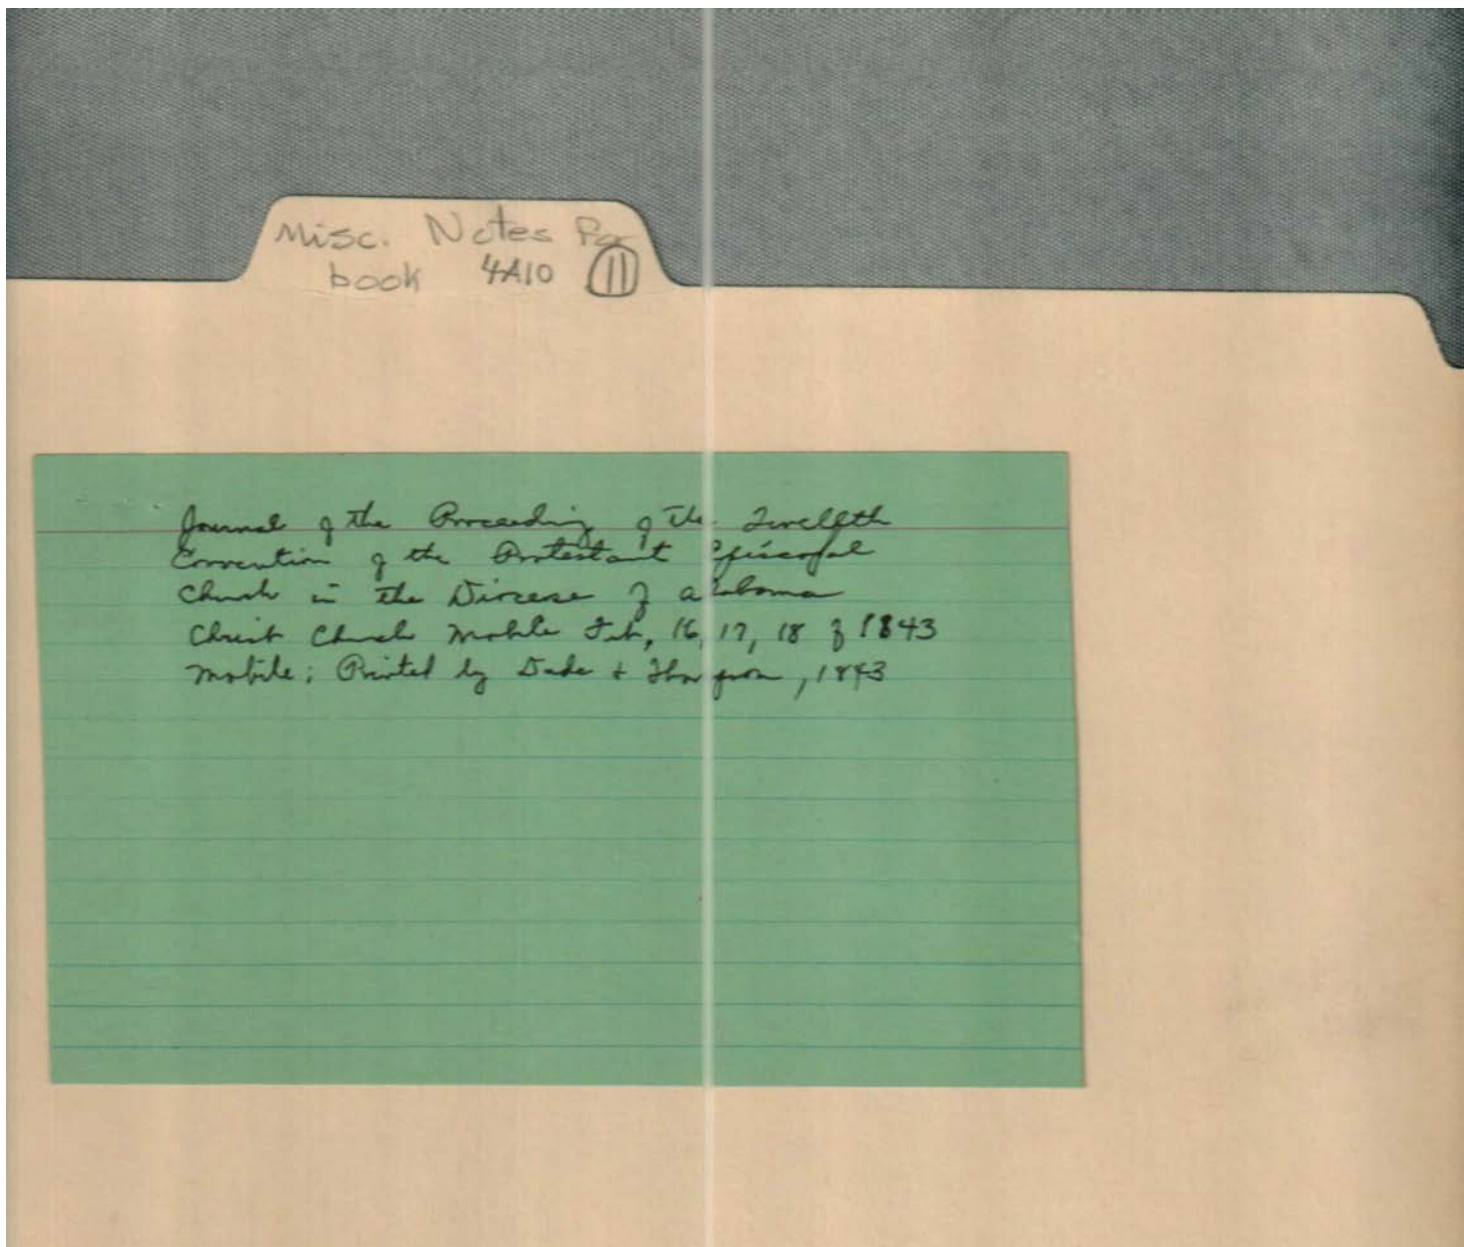 Misc. Notes For
book 4A10 11
Journal of the Proceeding of the Twelfth
Convention of the Protestant Episcopal
Church in the Diocese of Alabama
Christ Church Mobile Feb, 16, 17, 18 of 1843
Mobile; Printed by Dade & Thompson, 1843